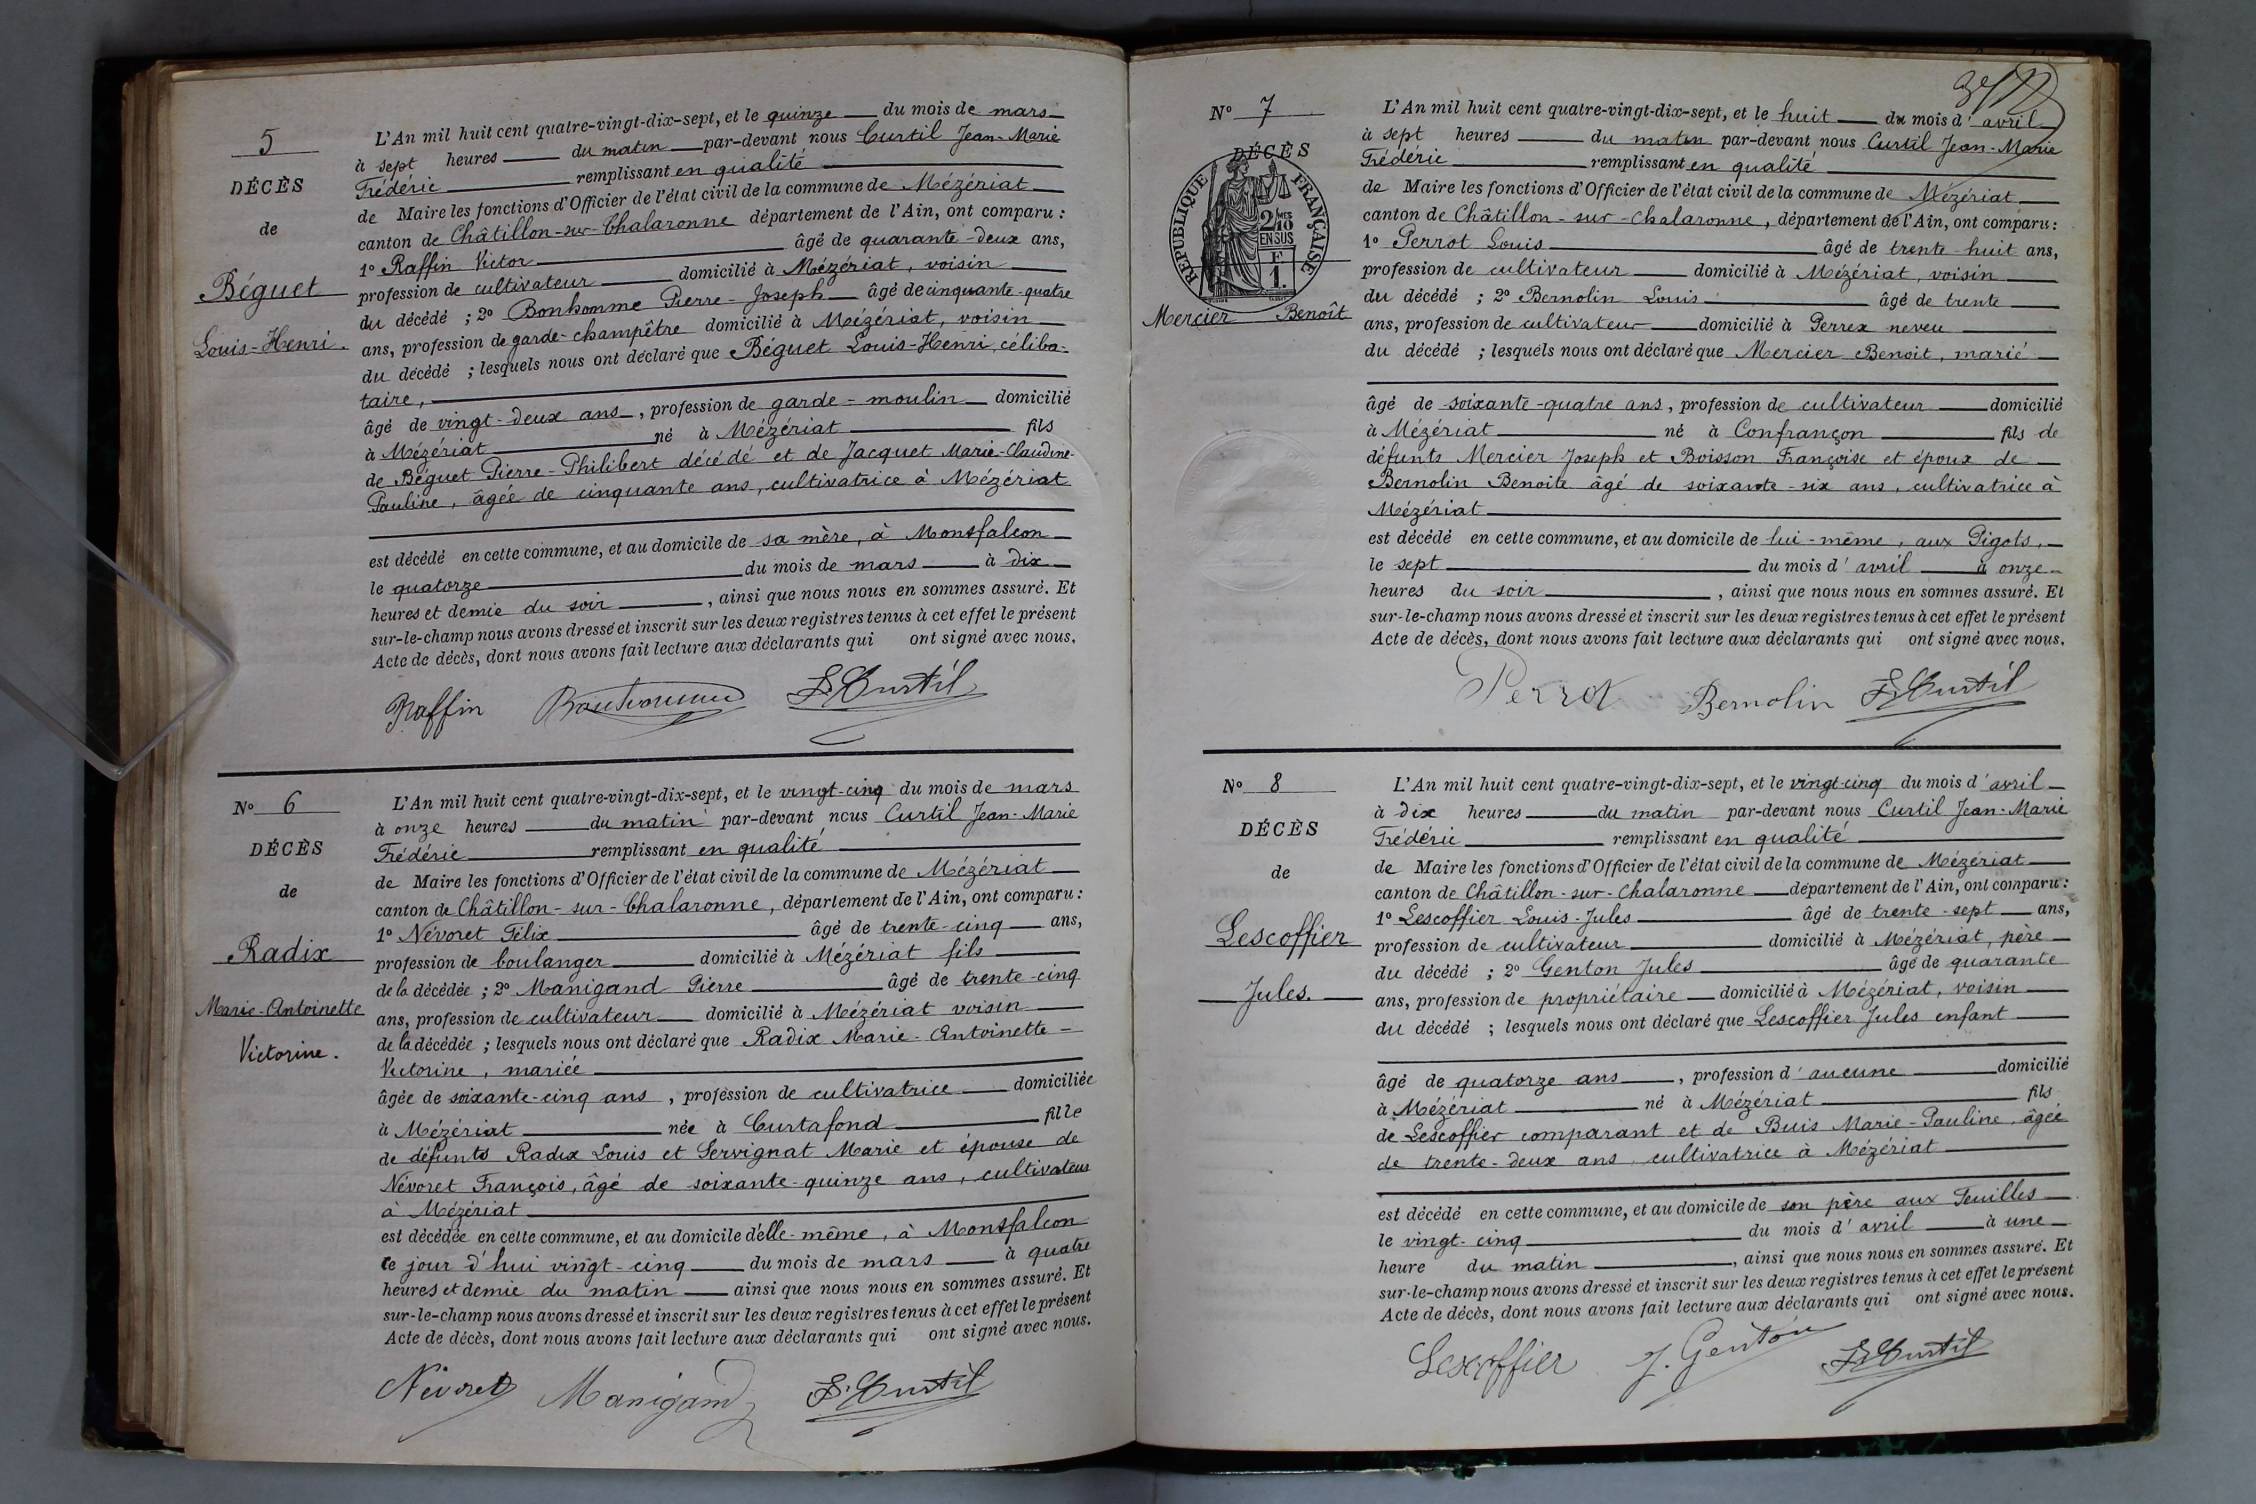 5
DÉCÈS
de
Béguet
Louis-Henri.
L'An mil huit cent quatre-vingt-dix-sept, et le quinze du mois de mars
à sept heures du matin par-devant nous Curtil Jean-Marie
Frédéric remplissant en qualité
de Maire les fonctions d'Officier de l'état civil de la commune de Mézériat
canton de Châtillon-sur-Chalaronne département de l'Ain, ont comparu :
1° Raffin Victor âgé de quarante-deux ans,
profession de cultivateur domicilié à Mézériat, voisin
du décédé ; 2° Bonhomme Pierre-Joseph âgé de cinquante-quatre
ans, profession de garde-champêtre domicilié à Mézériat, voisin
du décédé ; lesquels nous ont déclaré que Béguet Louis-Henri, céliba-
taire,
âgé de vingt-deux ans, profession de garde-moulin domicilié
à Mézériat né à Mézériat fils
de Béguet Pierre-Philibert décédé et de Jacquet Marie-Claudine-
Pauline, âgée de cinquante ans, cultivatrice à Mézériat
est décédé en cette commune, et au domicile de sa mère, à Montfalcon
le quatorze du mois de mars à dix
heures et demie du soir, ainsi que nous nous en sommes assuré. Et
sur-le-champ nous avons dressé et inscrit sur les deux registres tenus à cet effet le présent
Acte de décès, dont nous avons fait lecture aux déclarants qui ont signé avec nous.
Raffin Bonhomme F. Curtil
N° 6
DÉCÈS
de
Radix
Marie-Antoinette
Victorine.
L'An mil huit cent quatre-vingt-dix-sept, et le vingt-cinq du mois de mars
à onze heures du matin par-devant nous Curtil Jean-Marie
Frédéric remplissant en qualité
de Maire les fonctions d'Officier de l'état civil de la commune de Mézériat
canton de Châtillon-sur-Chalaronne, département de l'Ain, ont comparu :
1° Névoret Félix âgé de trente-cinq ans,
profession de boulanger domicilié à Mézériat fils
de la décédée ; 2° Manigand Pierre âgé de trente-cinq
ans, profession de cultivateur domicilié à Mézériat voisin
de la décédée ; lesquels nous ont déclaré que Radix Marie-Antoinette
Victorine, mariée
âgée de soixante-cinq ans, profession de cultivatrice domiciliée
à Mézériat née à Curtafond fille
de défunts Radix Louis et Servignat Marie et épouse de
Névoret François, âgé de soixante-quinze ans, cultivateur
à Mézériat
est décédée en cette commune, et au domicile d'elle-même, à Montfalcon
ce jour d'hui vingt-cinq du mois de mars à quatre
heures et demie du matin ainsi que nous nous en sommes assuré. Et
sur-le-champ nous avons dressé et inscrit sur les deux registres tenus à cet effet le présent
Acte de décès, dont nous avons fait lecture aux déclarants qui ont signé avec nous.
Névoret Manigand F. Curtil
N° 7
DÉCÈS
RÉPUBLIQUE FRANÇAISE
2/10 MES
EN SUS
F
1.
Mercier Benoît
L'An mil huit cent quatre-vingt-dix-sept, et le huit du mois d'avril
à sept heures du matin par-devant nous Curtil Jean-Marie
Frédéric remplissant en qualité
de Maire les fonctions d'Officier de l'état civil de la commune de Mézériat
canton de Châtillon-sur-Chalaronne, département de l'Ain, ont comparu :
1° Perrot Louis âgé de trente-huit ans,
profession de cultivateur domicilié à Mézériat, voisin
du décédé ; 2° Bernolin Louis âgé de trente
ans, profession de cultivateur domicilié à Perrex neveu
du décédé ; lesquels nous ont déclaré que Mercier Benoit, marié
âgé de soixante-quatre ans, profession de cultivateur domicilié
à Mézériat né à Confrançon fils de
défunts Mercier Joseph et Boisson Françoise et époux de
Bernolin Benoite âgé de soixante-six ans, cultivatrice à
Mézériat
est décédé en cette commune, et au domicile de lui-même, aux Pigots,
le sept du mois d'avril à onze
heures du soir, ainsi que nous nous en sommes assuré. Et
sur-le-champ nous avons dressé et inscrit sur les deux registres tenus à cet effet le présent
Acte de décès, dont nous avons fait lecture aux déclarants qui ont signé avec nous.
Perrot Bernolin F. Curtil
N° 8
DÉCÈS
de
Lescoffier
Jules.
L'An mil huit cent quatre-vingt-dix-sept, et le vingt-cinq du mois d'avril
à dix heures du matin par-devant nous Curtil Jean-Marie
Frédéric remplissant en qualité
de Maire les fonctions d'Officier de l'état civil de la commune de Mézériat
canton de Châtillon-sur-Chalaronne département de l'Ain, ont comparu :
1° Lescoffier Louis-Jules âgé de trente-sept ans,
profession de cultivateur domicilié à Mézériat, père
du décédé ; 2° Genton Jules âgé de quarante
ans, profession de propriétaire domicilié à Mézériat, voisin
du décédé ; lesquels nous ont déclaré que Lescoffier Jules enfant
âgé de quatorze ans, profession d'aucune domicilié
à Mézériat né à Mézériat fils
de Lescoffier comparant et de Buis Marie-Pauline, âgée
de trente-deux ans, cultivatrice à Mézériat
est décédé en cette commune, et au domicile de son père aux Feuilles
le vingt-cinq du mois d'avril à une
heure du matin, ainsi que nous nous en sommes assuré. Et
sur-le-champ nous avons dressé et inscrit sur les deux registres tenus à cet effet le présent
Acte de décès, dont nous avons fait lecture aux déclarants qui ont signé avec nous.
Lescoffier J. Genton F. Curtil